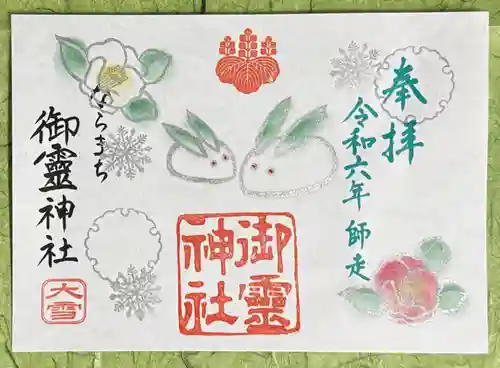 奉拝
令和六年 師走
ならまち
御靈神社
御靈
神社
大雪